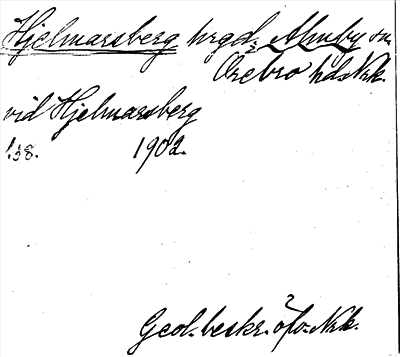 Hjelmarsberg hrgd, Almby sn.
Örebro hd. Nrk.
vid Hjelmarsberg
s. 38. 1902.
Geol. beskr. öfv. Nrk.